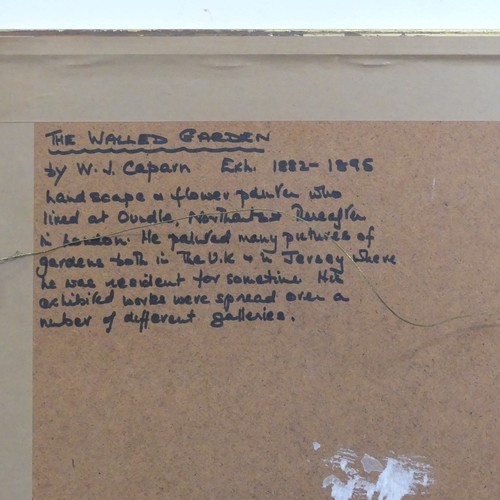 THE WALLED GARDEN
by W. J. Caparn Exh. 1882-1895
Landscape & flower painter who
lived at Oundle, Northants. Thereafter
in London. He painted many pictures of
gardens both in The U.K & in Jersey where
he was resident for sometime His
exhibited works were spread over a
number of different galleries.